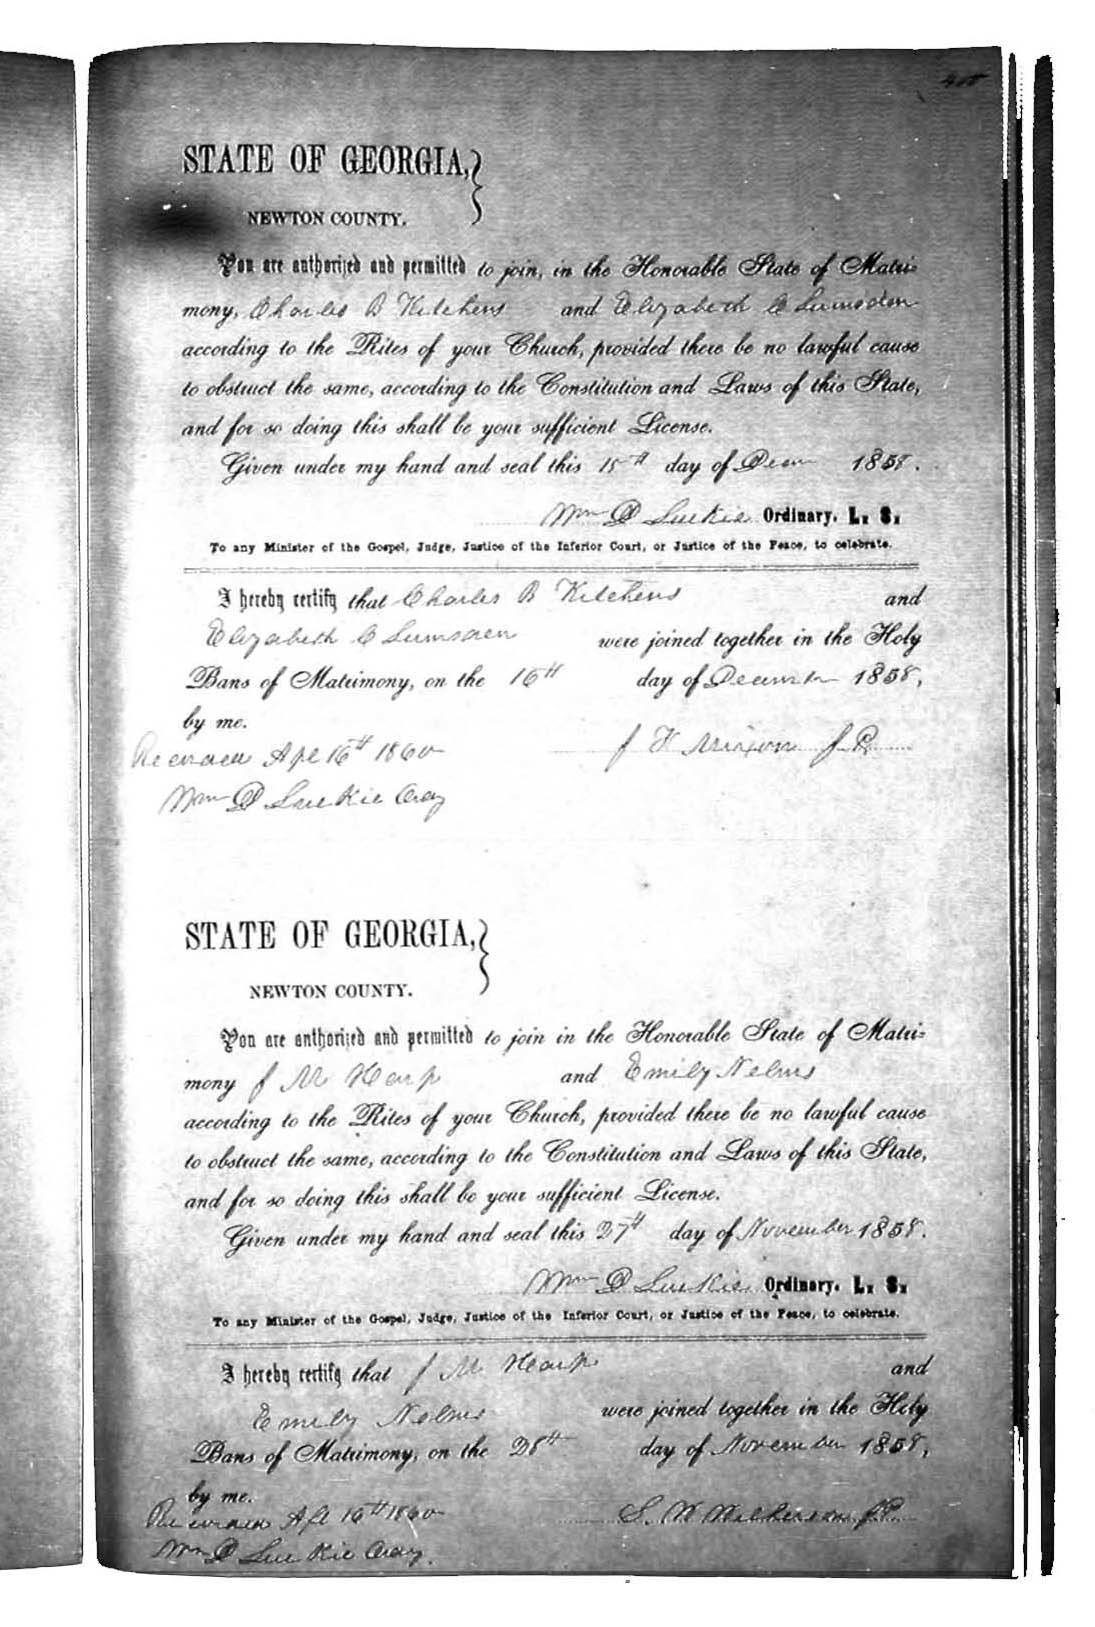 STATE OF GEORGIA,
NEWTON COUNTY.
You are authorized and permitted to join, in the Honorable State of Matri-
mony, Charles B Kitchens and Elizabeth C Lumsden
according to the Rites of your Church, provided there be no lawful cause
to obstruct the same, according to the Constitution and Laws of this State,
and for so doing this shall be your sufficient License.
Given under my hand and seal this 15th day of Decm 1858.
Wm D Luckie Ordinary. L. S.
To any Minister of the Gospel, Judge, Justice of the Inferior Court, or Justice of the Peace, to celebrate.
I hereby certify that Charles B Kitchens and
Elizabeth C Lumsden were joined together in the Holy
Bans of Matrimony, on the 16th day of December 1858,
by me.
J H Mixon J.P.
Recorded Apl 16th 1860
Wm D Luckie Ordy
STATE OF GEORGIA,
NEWTON COUNTY.
You are authorized and permitted to join in the Honorable State of Matri-
mony J M Harp and Emily Nelms
according to the Rites of your Church, provided there be no lawful cause
to obstruct the same, according to the Constitution and Laws of this State,
and for so doing this shall be your sufficient License.
Given under my hand and seal this 27th day of November 1858.
Wm D Luckie Ordinary. L. S.
To any Minister of the Gospel, Judge, Justice of the Inferior Court, or Justice of the Peace, to celebrate.
I hereby certify that J M Harp and
Emily Nelms were joined together in the Holy
Bans of Matrimony, on the 28th day of November 1858,
by me.
Recorded Apl 16th 1860
S. W Wilkerson J.P.
Wm D Luckie Ordy.